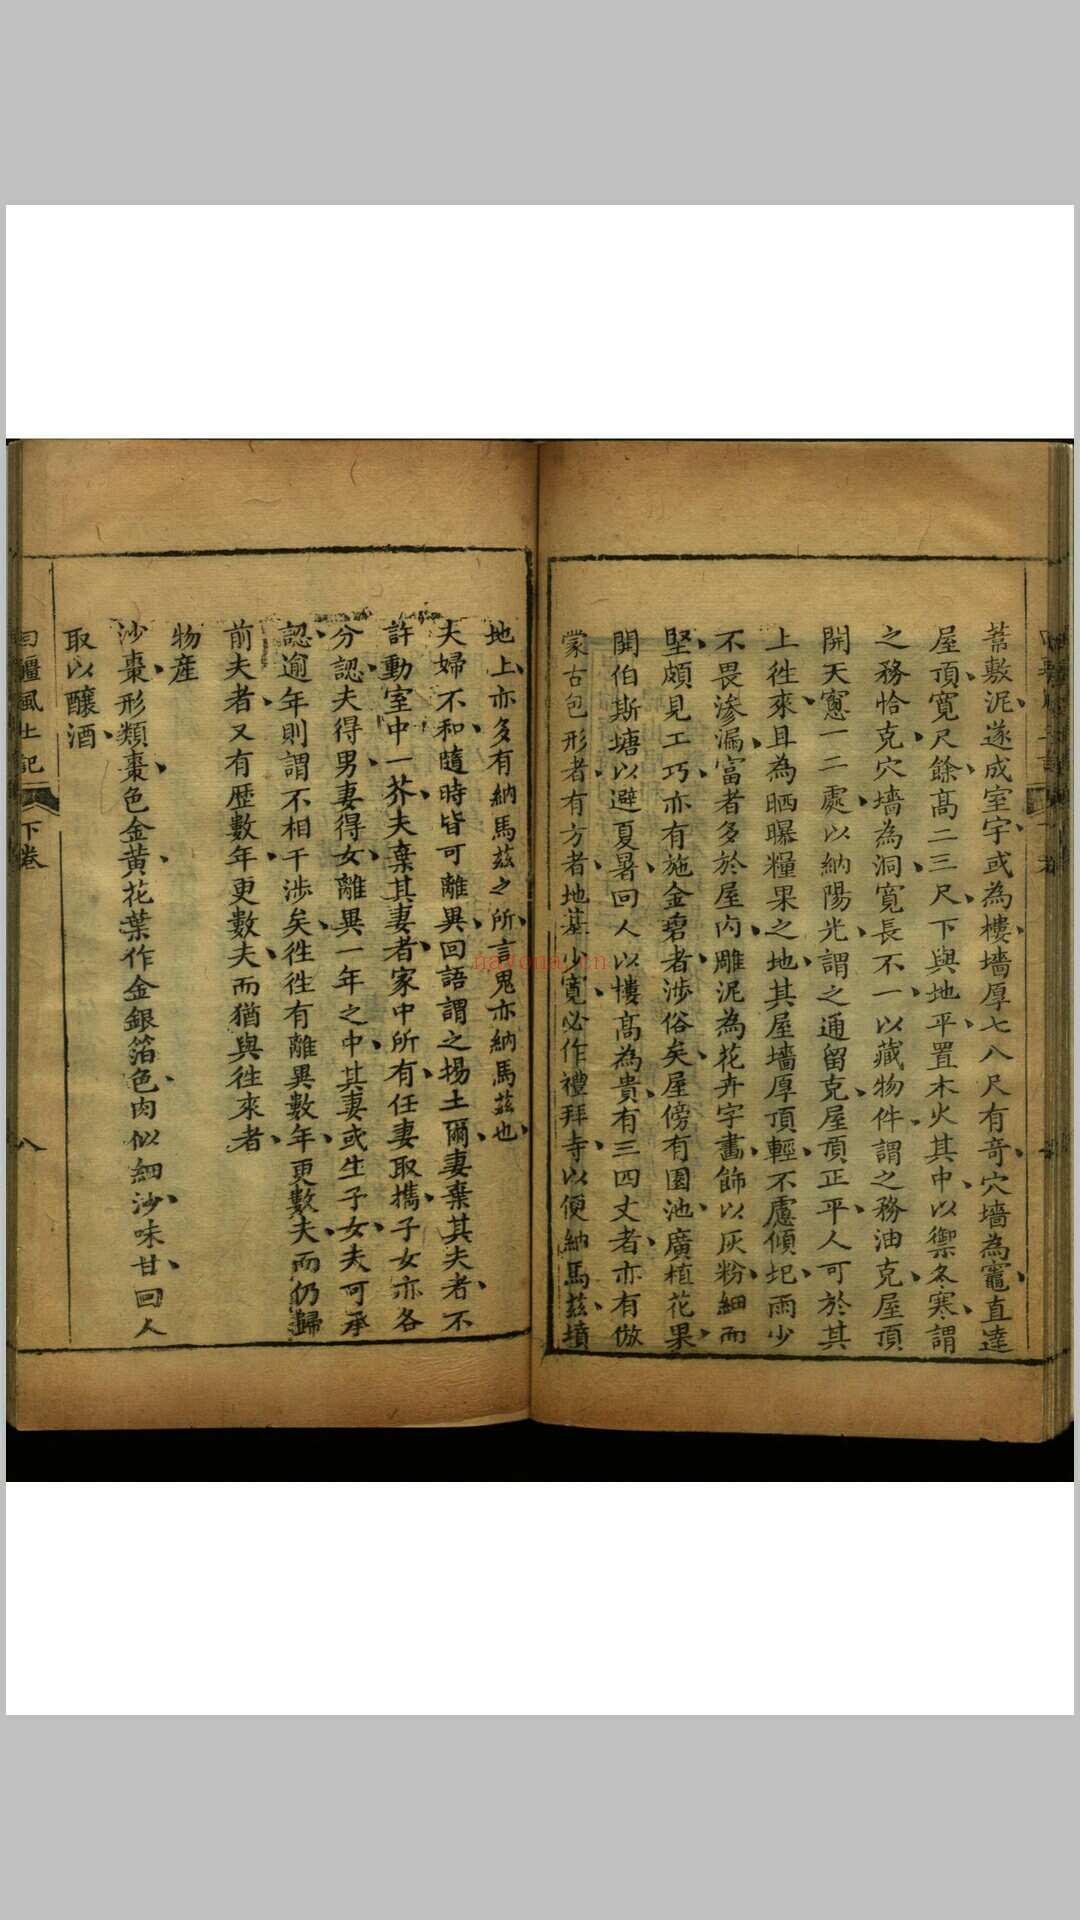 葦敷泥遂成室宇或為樓墻厚七八尺有奇穴墻為竈直達
屋頂寬尺餘髙二三尺下與地平置木火其中以禦冬寒謂
之務恰克穴墻為洞寬長不一以藏物件謂之務油克屋頂
開天窻一二處以納陽光謂之通留克屋頂正平人可於其
上徃來且為晒曝糧果之地其屋墻厚頂輕不慮傾圯雨少
不畏滲漏富者多於屋内雕泥為花卉字畫飾以灰粉細而
堅頗見工巧亦有施金碧者渉俗矣屋傍有園池廣植花果
開伯斯塘以避夏暑回人以樓髙為貴有三四丈者亦有倣
蒙古包形者有方者地基少寛必作禮拜寺以便納馬茲墳
地上亦多有納馬茲之所言鬼亦納馬茲也
夫婦不和隨時皆可離異回語謂之揚土爾妻棄其夫者不
許動室中一芥夫棄其妻者家中所有任妻取攜子女亦各
分認夫得男妻得女離異一年之中其妻或生子女夫可承
認逾年則謂不相干涉矣徃徃有離異數年更數夫而仍歸
前夫者又有歴數年更數夫而猶與徃來者
物産
沙棗形類棗色金黄花葉作金銀箔色肉似細沙味甘回人
取以釀酒
回疆風土記
下卷
八
nayona.cn